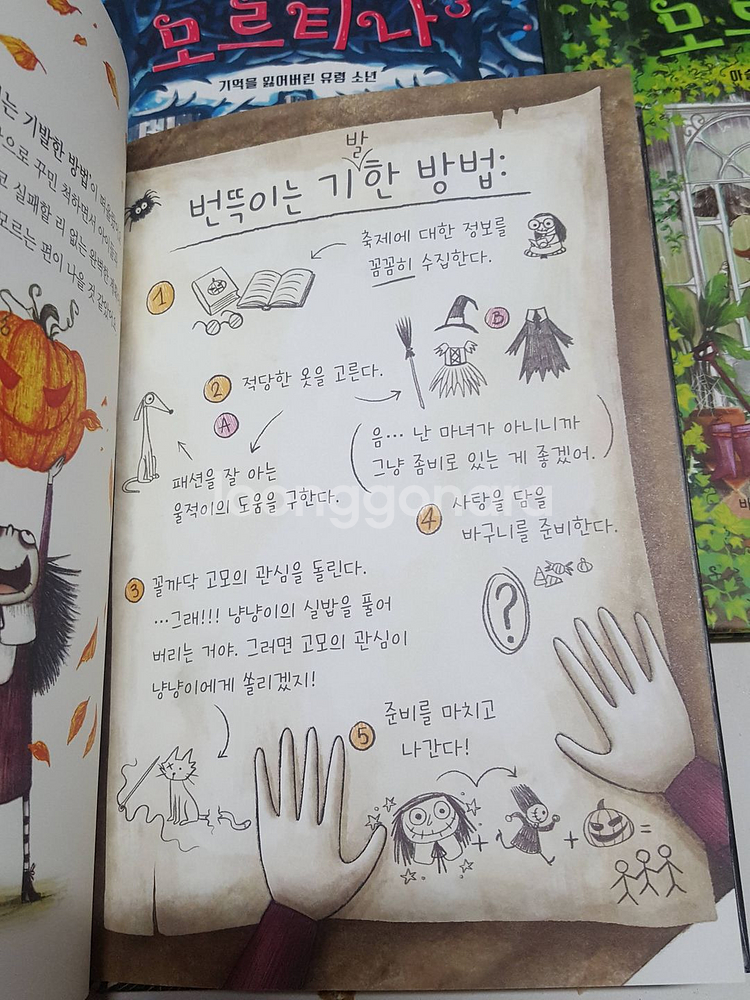 모르티나 3
기억을 잃어버린 유령 소년
모르
마술
는 기발한 방법이
으로 꾸민 척하면서 아이들
고 실패할 리 없는 완벽한
모르는 편이 나을 것 같았어요
발
번뜩이는 기한 방법:
축제에 대한 정보를
꼼꼼히 수집한다.
1
B
2 적당한 옷을 고른다.
A
패션을 잘 아는
울적이의 도움을 구한다.
(음... 난 마녀가 아니니까
그냥 좀비로 있는 게 좋겠어.)
4 사탕을 담을
바구니를 준비한다.
?
3 꼴까닥 고모의 관심을 돌린다.
...그래!!! 냥냥이의 실밥을 풀어
버리는 거야. 그러면 고모의 관심이
냥냥이에게 쏠리겠지!
5 준비를 마치고
나간다!
+ + =
joonggonara